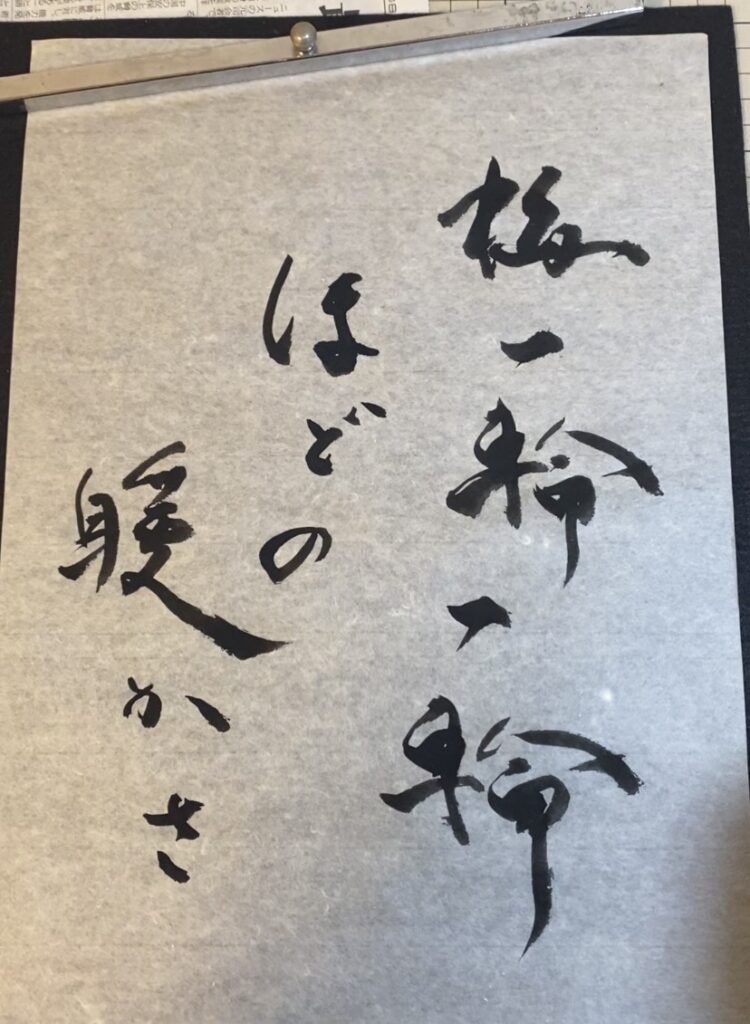 梅一輪一輪
ほどの
暖かさ